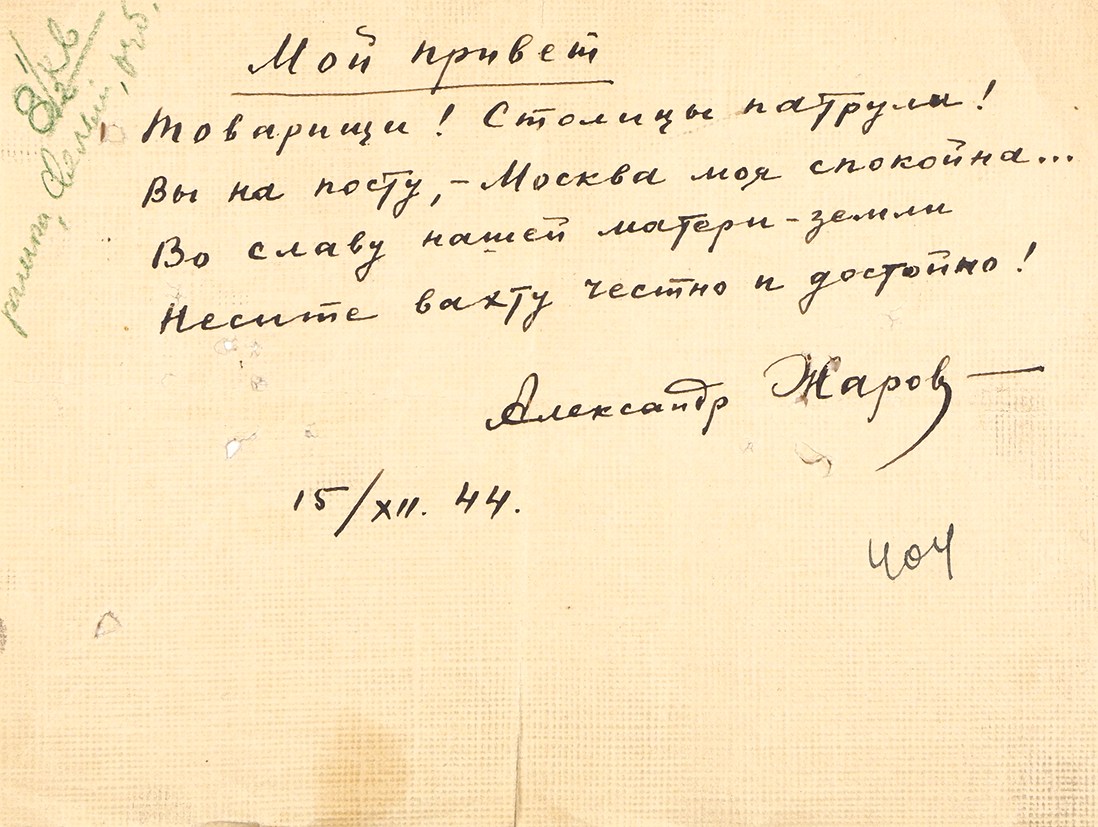 Мой привет
Товарищи! Столицы патрули!
Вы на посту, - Москва моя спокойна...
Во славу нашей матери - земли
Несите вахту честно и достойно!
Александр Жаров
15/XII. 44.
404